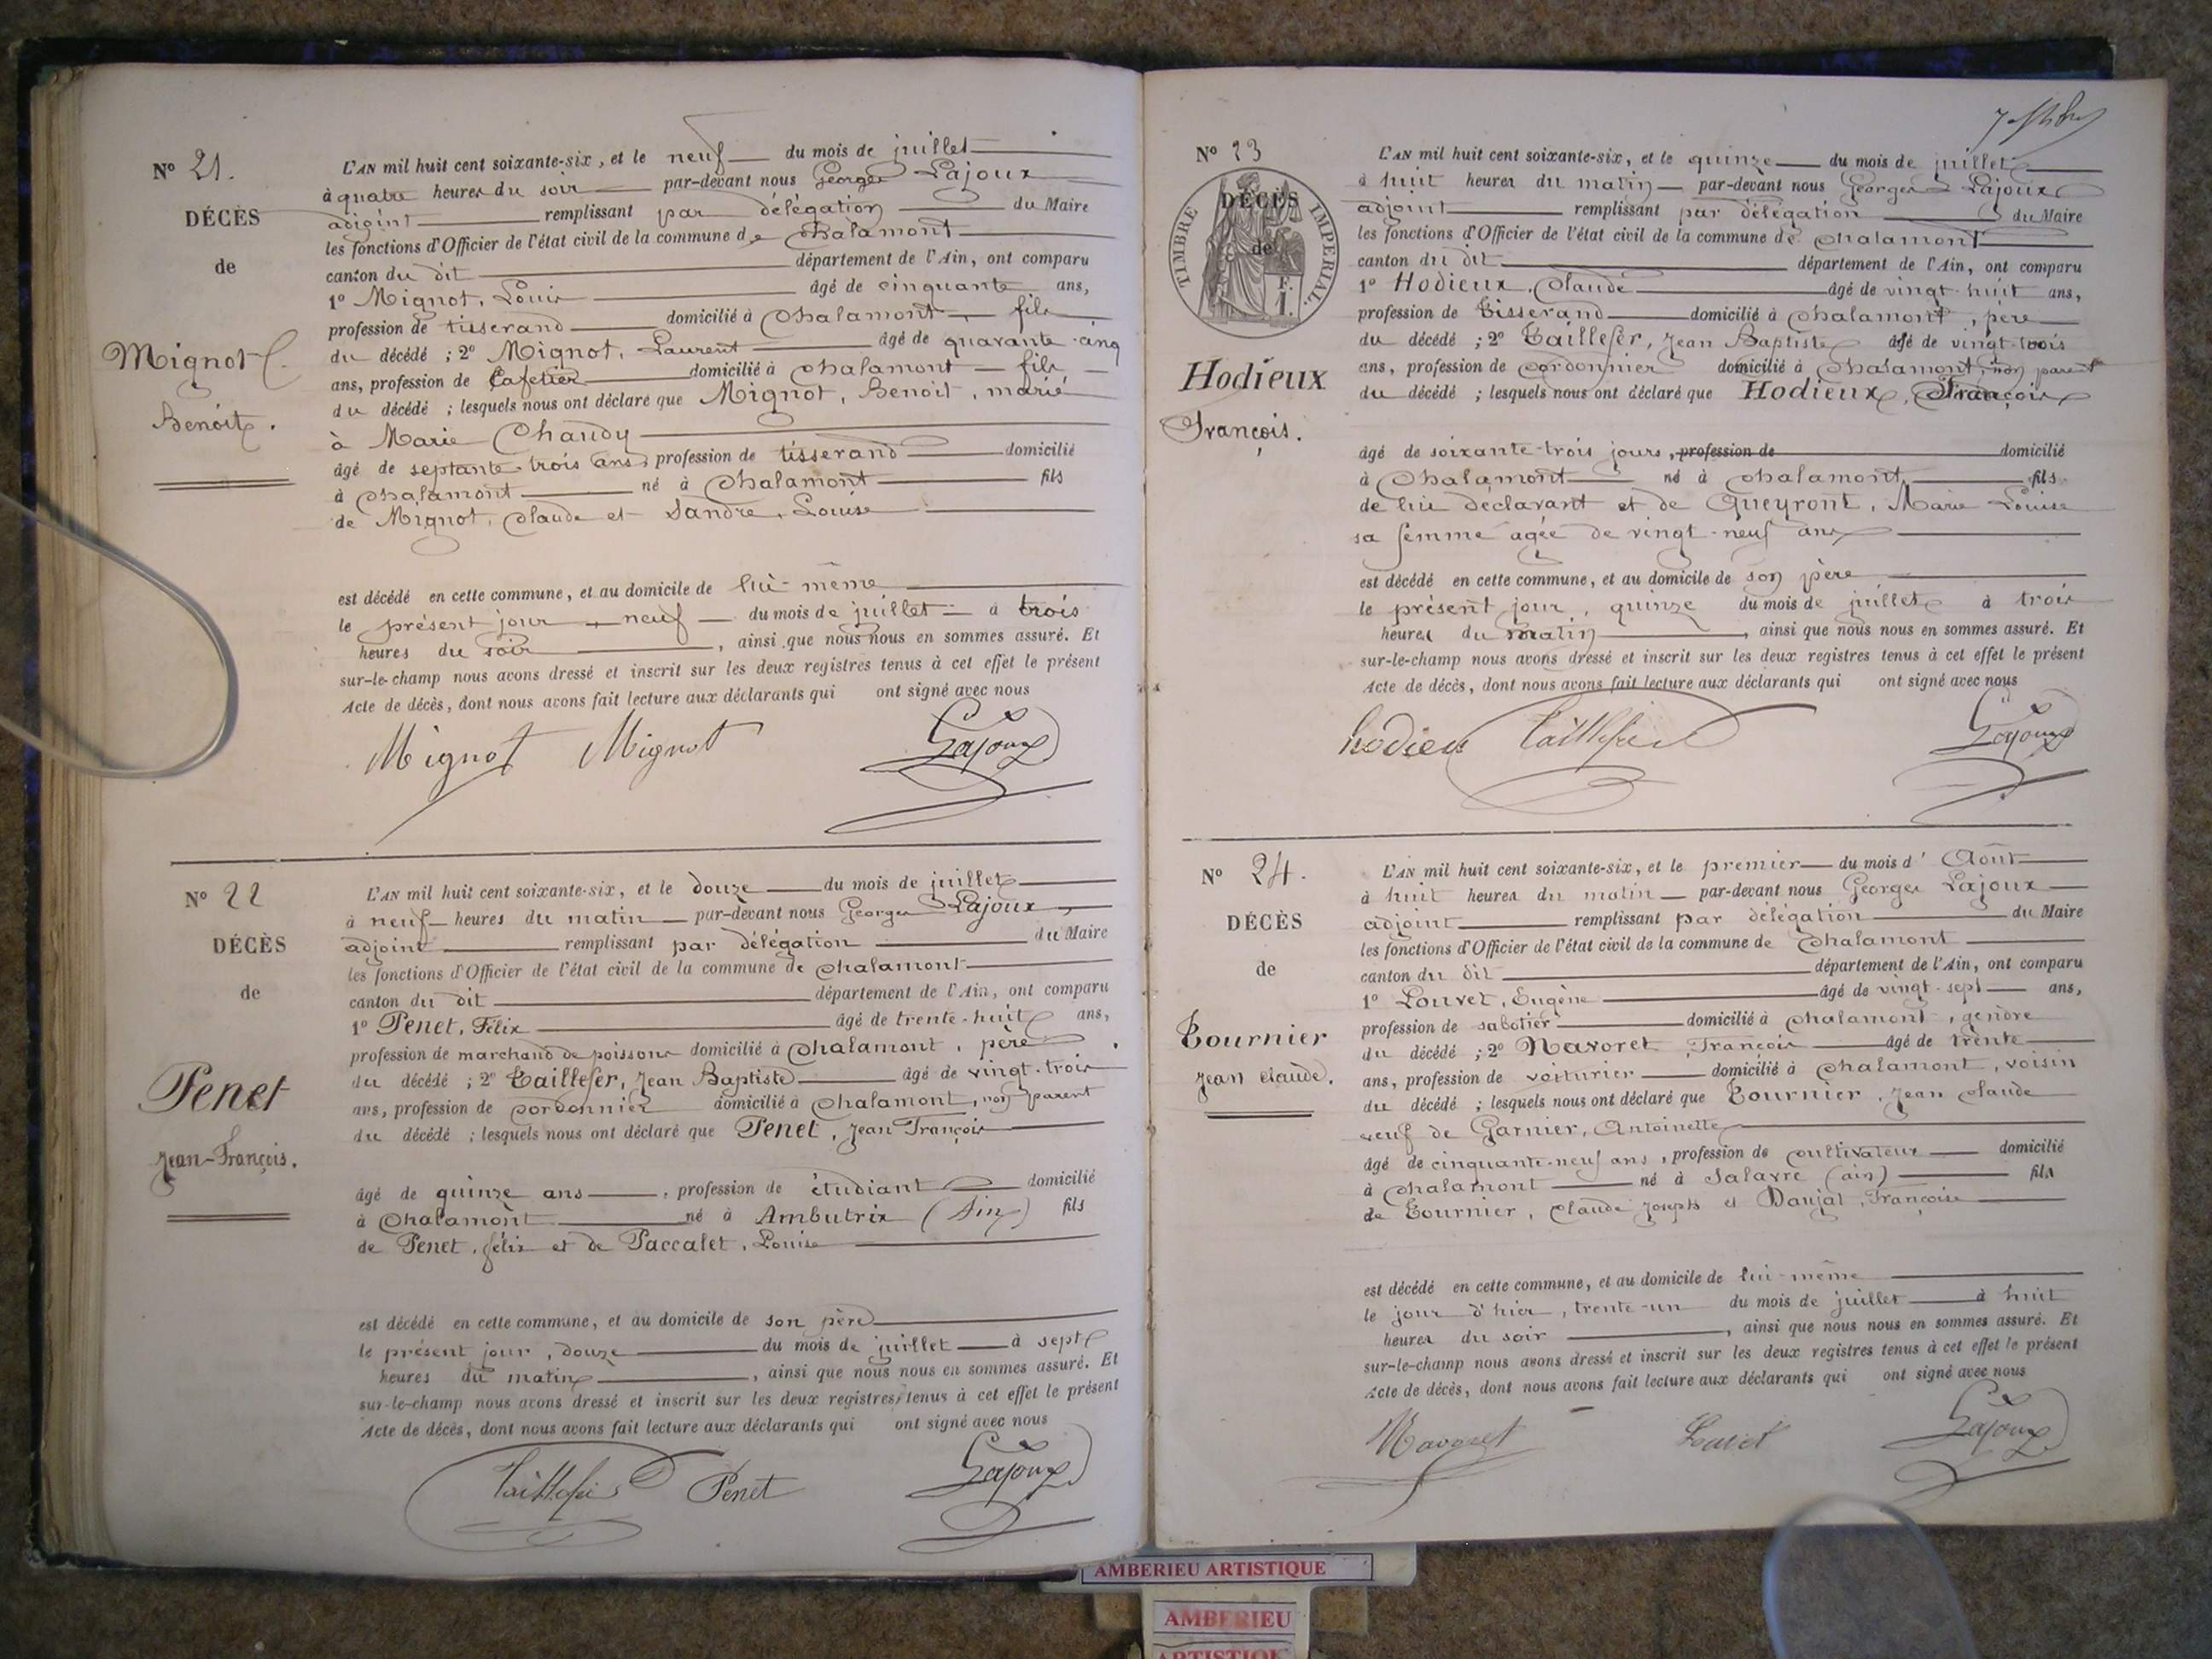 N° 21.
DÉCÈS
de
Mignot
Benoît.
L'AN mil huit cent soixante-six, et le neuf du mois de juillet
à quatre heures du soir par-devant nous Georges Lajoux
adjoint remplissant par délégation du Maire
les fonctions d'Officier de l'état civil de la commune de Chalamont
canton du dit département de l'Ain, ont comparu
1° Mignot, Louis âgé de cinquante ans,
profession de tisserand domicilié à Chalamont fils
du décédé ; 2° Mignot, Laurent âgé de quarante-cinq
ans, profession de Cafetier domicilié à Chalamont fils
du décédé ; lesquels nous ont déclaré que Mignot, Benoit, marié
à Marie Chaudy
âgé de septante-trois ans, profession de tisserand domicilié
à Chalamont né à Chalamont fils
de Mignot, Claude et Sandre, Louise
est décédé en cette commune, et au domicile de lui-même
le présent jour neuf du mois de juillet à trois
heures du soir, ainsi que nous nous en sommes assuré. Et
sur-le-champ nous avons dressé et inscrit sur les deux registres tenus à cet effet le présent
Acte de décès, dont nous avons fait lecture aux déclarants qui ont signé avec nous
Mignot Mignot Lajoux
N° 22
DÉCÈS
de
Penet
Jean-François.
L'AN mil huit cent soixante-six, et le douze du mois de juillet
à neuf heures du matin par-devant nous Georges Lajoux,
adjoint remplissant par délégation du Maire
les fonctions d'Officier de l'état civil de la commune de Chalamont
canton du dit département de l'Ain, ont comparu
1° Penet, Félix âgé de trente-huit ans,
profession de marchand de poissons domicilié à Chalamont, père
du décédé ; 2° Taillefer, Jean Baptiste âgé de vingt-trois
ans, profession de Cordonnier domicilié à Chalamont, non parent
du décédé ; lesquels nous ont déclaré que Penet, Jean François
âgé de quinze ans, profession de étudiant domicilié
à Chalamont né à Ambutrix (Ain) fils
de Penet, félix et de Paccalet, Louise
est décédé en cette commune, et au domicile de son père
le présent jour, douze du mois de juillet à sept
heures du matin, ainsi que nous nous en sommes assuré. Et
sur-le-champ nous avons dressé et inscrit sur les deux registres tenus à cet effet le présent
Acte de décès, dont nous avons fait lecture aux déclarants qui ont signé avec nous
Taillefer Penet Lajoux
N° 23
TIMBRE IMPERIAL.
DÉCÈS
de
Hodieux
François.
L'AN mil huit cent soixante-six, et le quinze du mois de juillet
à huit heures du matin par-devant nous Georges Lajoux
adjoint remplissant par délégation du Maire
les fonctions d'Officier de l'état civil de la commune de Chalamont
canton du dit département de l'Ain, ont comparu
1° Hodieux, Claude âgé de vingt-huit ans,
profession de Tisserand domicilié à Chalamont, père
du décédé ; 2° Taillefer, Jean Baptiste âgé de vingt-trois
ans, profession de Cordonnier domicilié à Chalamont, non parent
du décédé ; lesquels nous ont déclaré que Hodieux, François
âgé de soixante-trois jours, profession de domicilié
à Chalamont né à Chalamont, fils
de lui déclarant et de Queyront, Marie Louise
sa femme agée de vingt-neuf ans
est décédé en cette commune, et au domicile de son père
le présent jour, quinze du mois de juillet à trois
heures du matin, ainsi que nous nous en sommes assuré. Et
sur-le-champ nous avons dressé et inscrit sur les deux registres tenus à cet effet le présent
Acte de décès, dont nous avons fait lecture aux déclarants qui ont signé avec nous
hodieu Taillefer Lajoux
N° 24.
DÉCÈS
de
Tournier
Jean Claude.
L'AN mil huit cent soixante-six, et le premier du mois d' Août
à huit heures du matin par-devant nous Georges Lajoux
adjoint remplissant par délégation du Maire
les fonctions d'Officier de l'état civil de la commune de Chalamont
canton du dit département de l'Ain, ont comparu
1° Louvet, Eugène âgé de vingt-sept ans,
profession de sabotier domicilié à Chalamont, gendre
du décédé ; 2° Navoret, François âgé de trente
ans, profession de voiturier domicilié à Chalamont, voisin
du décédé ; lesquels nous ont déclaré que Tournier, Jean Claude
veuf de Garnier, Antoinette
âgé de cinquante-neuf ans, profession de cultivateur domicilié
à Chalamont né à Salavre (ain) fils
de Tournier, Claude Joseph et Daujat, Françoise
est décédé en cette commune, et au domicile de lui-même
le jour d'hier, trente-un du mois de juillet à huit
heures du soir, ainsi que nous nous en sommes assuré. Et
sur-le-champ nous avons dressé et inscrit sur les deux registres tenus à cet effet le présent
Acte de décès, dont nous avons fait lecture aux déclarants qui ont signé avec nous
Navoret Louvet Lajoux
AMBERIEU ARTISTIQUE
AMBERIEU
ARTISTIQUE